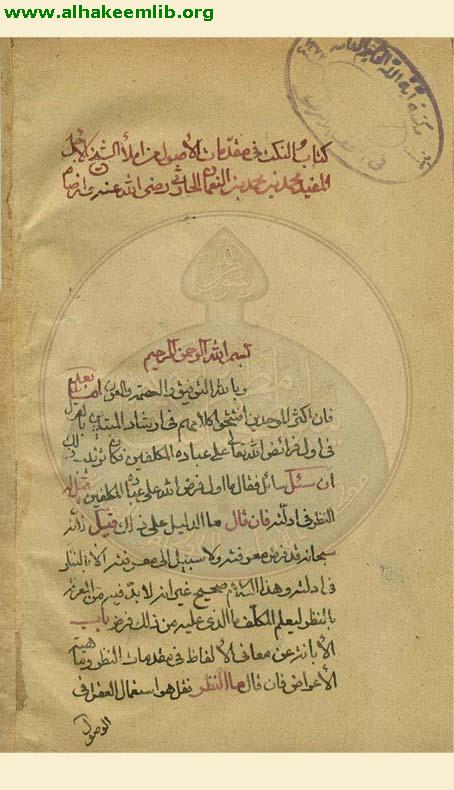 www.alhakeemlib.org
كتاب النكت في مقدمات الأصول من املاء الشيخ الأجل
المفيد محمد بن محمد بن النعمان الحارثي رضي الله عنه وارضاه
بسم الله الرحمن الرحيم
وبالله التوفيق والعصمة والعون اما بعد
فان اكثر الموحدين افتتحوا كلامهم في ارشاد المبتدين بالقول
في اول فرائض الله تعالى على عباده المكلفين
ان سئل سائل فقال ما اول فرض الله على عباده المكلفين فقل له
النظر في ادلته فان قال ما الدليل على ذلك قيل لانه
سبحانه قد فرض معرفته ولا سبيل الى معرفته الا النظر
في ادلته وهذا الكلام صحيح غير انه لا بد فيه من
بالنظر ليعلم المكلف ما الذي عليه من ذلك فرض باب
الأبانة عن معاني الألفاظ في مقدمات النظر
الأعراض فان قال ما النظر فقل هو استعمال العقل في
الوصول